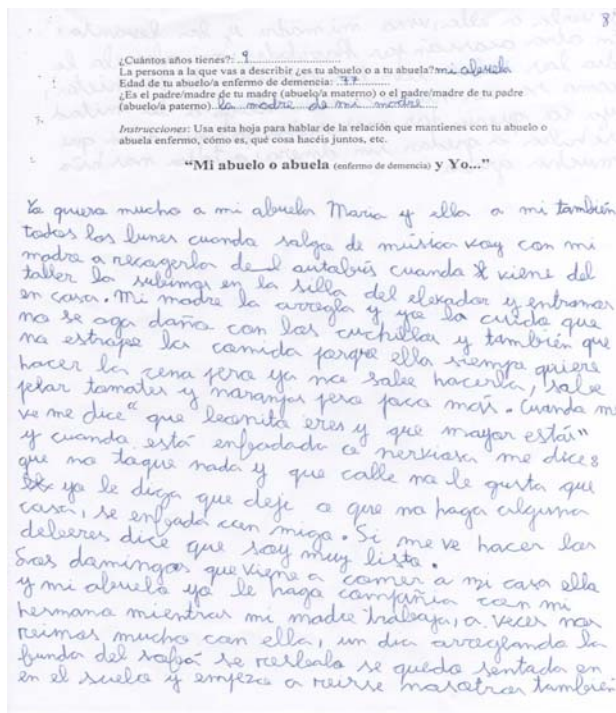 8
¿Cuántos años tienes?: 9
La persona a la que vas a describir ¿es tu abuelo o a tu abuela? mi abuela
Edad de tu abuelo/a enfermo de demencia: 77
¿Es el padre/madre de tu madre (abuelo/a materno) o el padre/madre de tu padre
(abuelo/a paterno). la madre de mi madre
Instrucciones: Usa esta hoja para hablar de la relación que mantienes con tu abuelo o
abuela enfermo, cómo es, qué cosa hacéis juntos, etc.
“Mi abuelo o abuela (enfermo de demencia) y Yo...”
Yo quiero mucho a mi abuela Maria y ella a mi también
todos los lunes cuando salgo de música voy con mi
madre a recogerla del autobús cuando viene del
taller la subimos en la silla del elevador y entramos
en casa. Mi madre la arregla y yo la cuido que
no se aga daño con los cuchillos y también que
no estropee la comida porque ella siempre quiere
hacer la cena pero ya no sabe hacerla, sabe
pelar tomates y naranjas pero poco más. Cuando me
ve me dice “que bonita eres y que mayor estás”
y cuando está enfadada o nerviosa me dice
que no toque nada y que calle no le gusta que
yo le diga que deje o que no haga alguna
cosa, se enfada con migo. Si me ve hacer los
deberes dice que soy muy lista.
Los domingos que viene a comer a mi casa ella
y mi abuelo yo le hago compañia con mi
hermana mientras mi madre trabaja, a veces nos
reimos mucho con ella, un dia arreglando la
funda del sofá se resbalo se quedo sentada en
en el suelo y empezo a reirse nosotros también